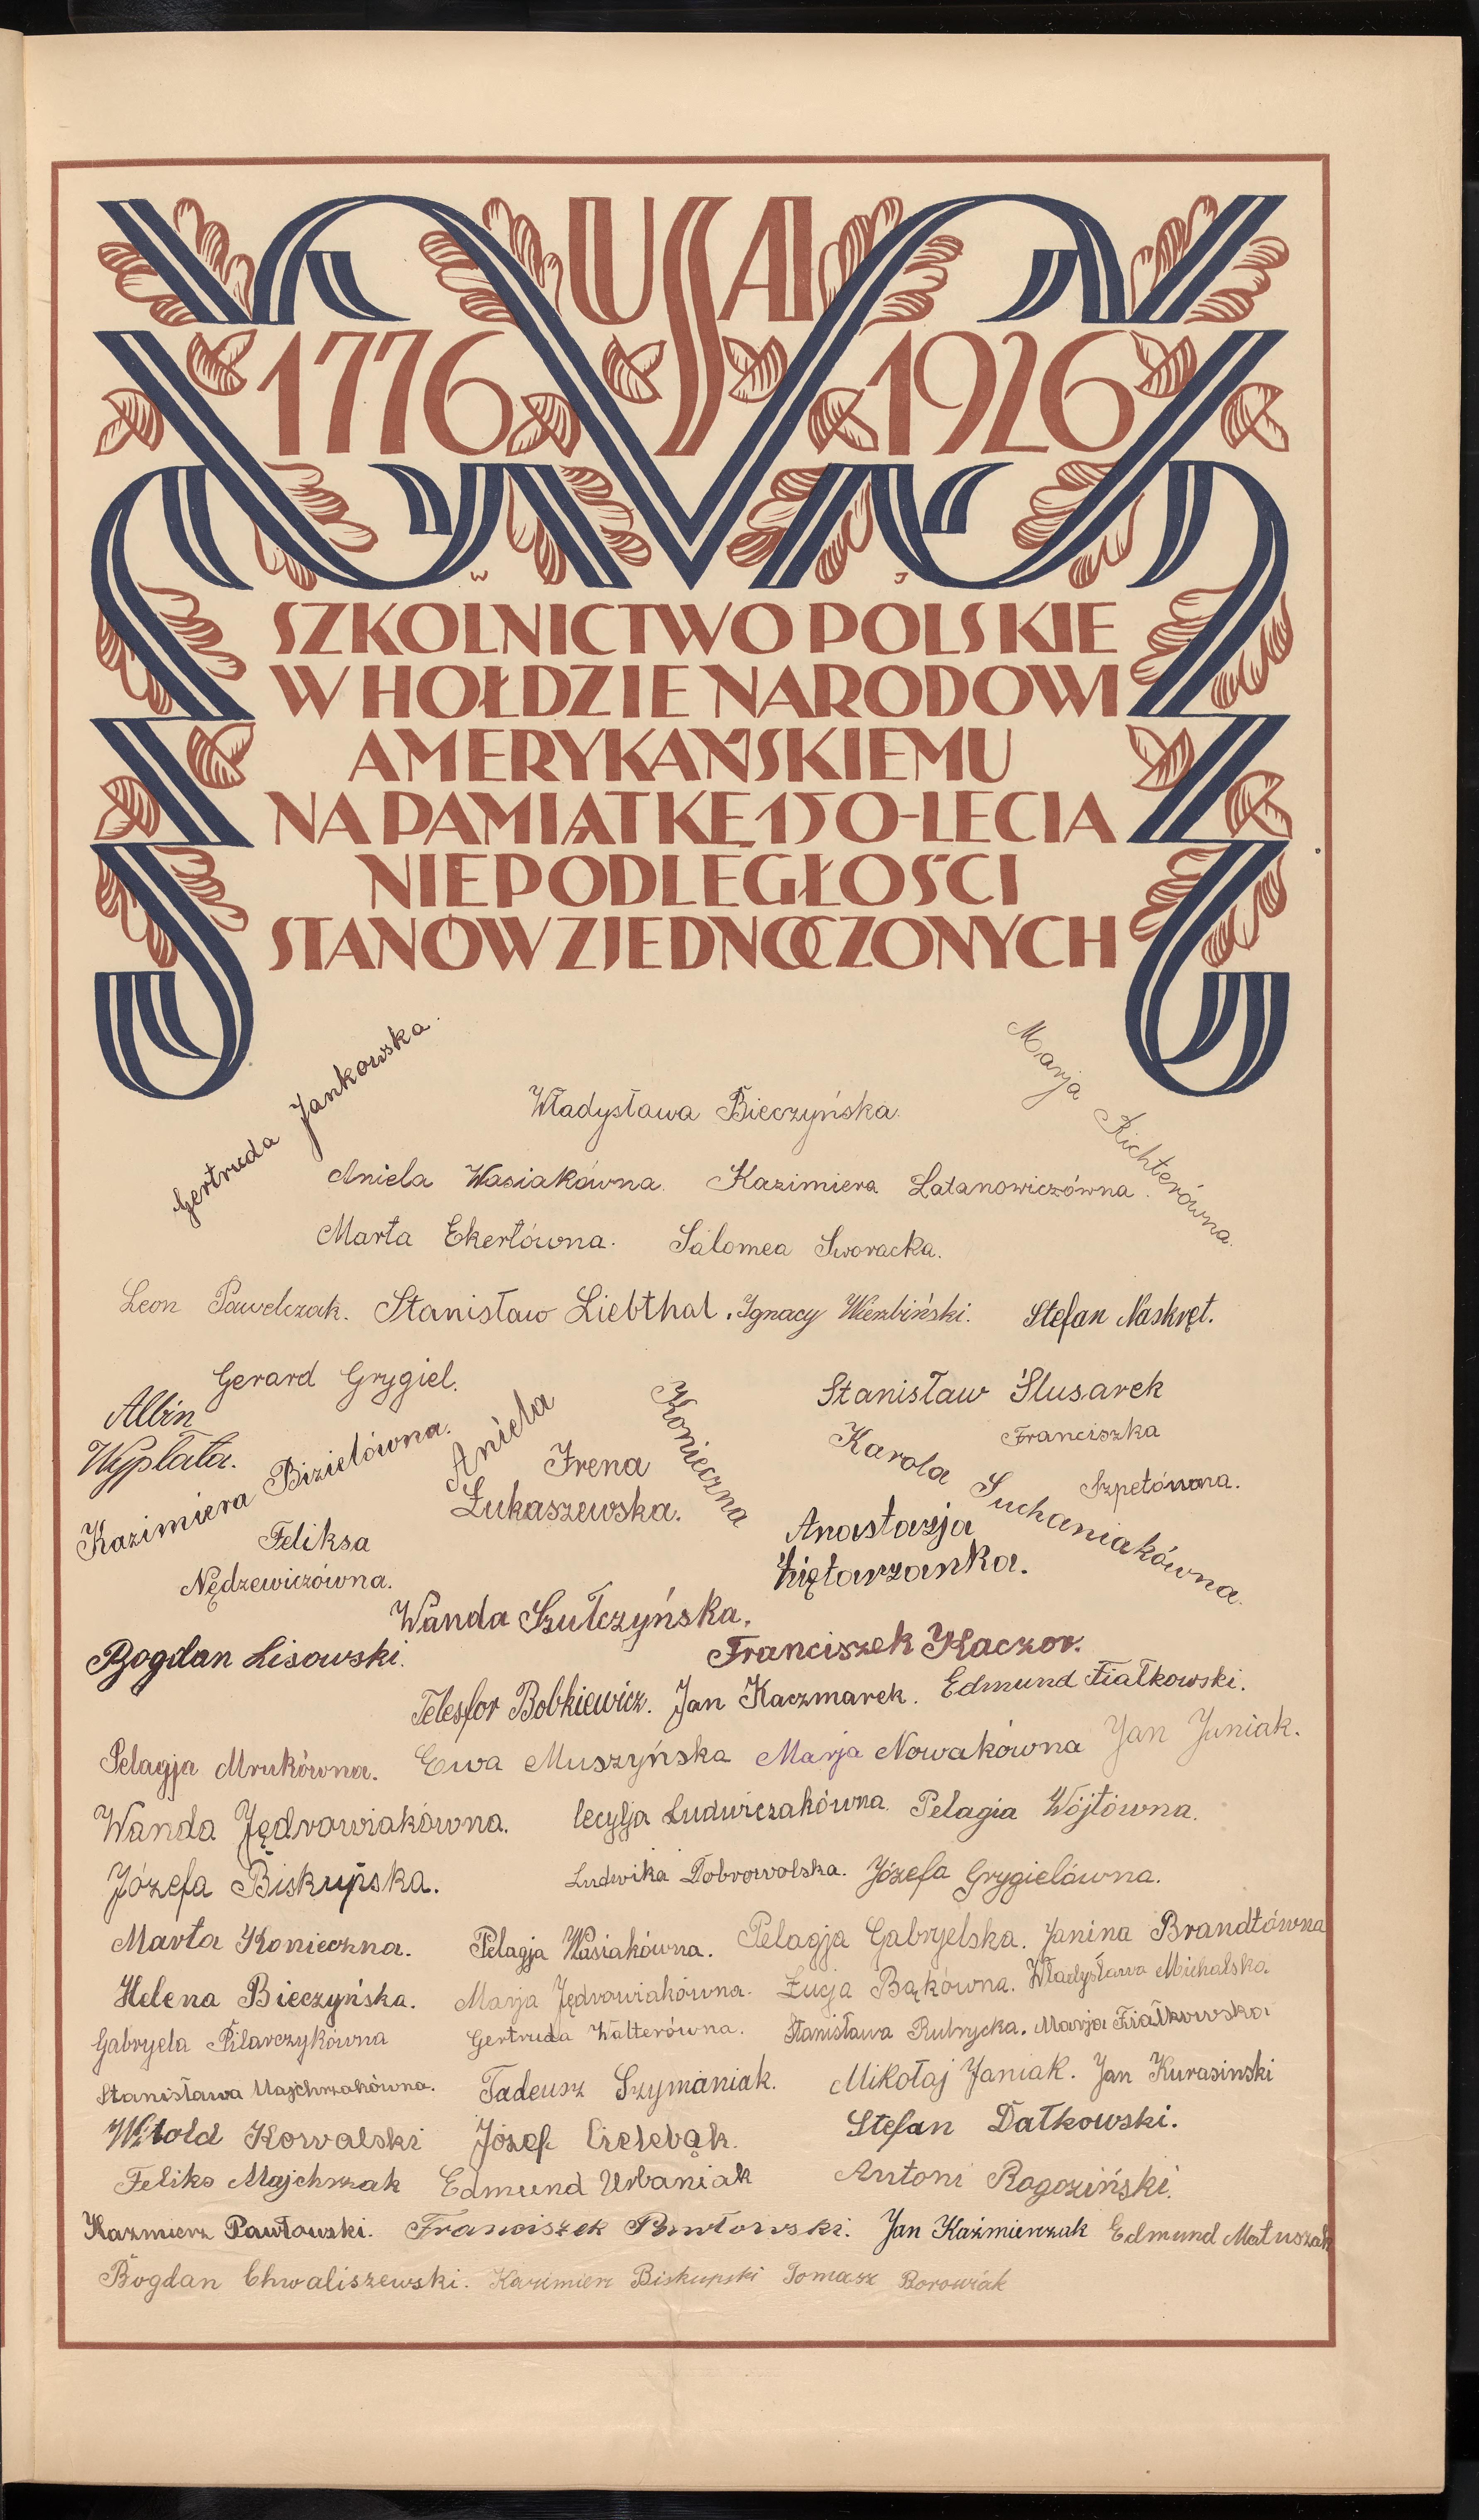 USA
1776 1926
W J
SZKOLNICTWO POLSKIE
W HOŁDZIE NARODOWI
AMERYKAŃSKIEMU
NA PAMIĄTKĘ 150-LECIA
NIEPODLEGŁOŚCI
STANÓW ZJEDNOCZONYCH
Gertruda Jankowska.
Marja Richterówna.
Władysława Bieczyńska.
Aniela Wasiakówna. Kazimiera Latanowiczówna.
Marta Ekertówna. Salomea Sworacka.
Leon Pawelczak. Stanisław Liebthal. Ignacy Wierzbiński. Stefan Naskręt.
Gerard Grygiel. Stanisław Ślusarek
Albin
Wypłata.
Kazimiera Bizielówna.
Aniela Konieczna
Irena
Łukaszewska.
Karola Suchaniakówna.
Franciszka
Szpetówna.
Feliksa
Nędzewiczówna.
Anastazja
Ziętarzanka.
Wanda Szułczyńska.
Bogdan Lisowski. Franciszek Kaczor.
Telesfor Bobkiewicz. Jan Kaczmarek. Edmund Fiałkowski.
Pelagja Mrukówna. Ewa Muszyńska Marja Nowakówna Jan Juniak.
Wanda Jędrowiakówna. Cecylja Ludwiczakówna. Pelagia Wójtówna.
Józefa Biskupska. Ludwika Dobrowolska. Józefa Grygielówna.
Marta Konieczna. Pelagja Wasiakówna. Pelagja Gabryelska. Janina Brandtówna
Helena Bieczyńska. Marja Jędrowiakówna. Łucja Bąkówna. Władysława Michalska
Gabryela Pilarczykówna Gertruda Walterówna. Stanisława Rubrycka. Marja Fiałkowska
Stanisława Majchrzakówna. Tadeusz Szymaniak. Mikołaj Janiak. Jan Kurasinski
Witold Kowalski Józef Cielebąk. Stefan Dałkowski.
Feliks Majchrzak Edmund Urbaniak Antoni Rogoziński.
Kazmierz Pawłowski. Franciszek Pawłowski. Jan Kaźmierzak Edmund Matuszak
Bogdan Chwaliszewski. Kazimierz Biskupski Tomasz Borowiak